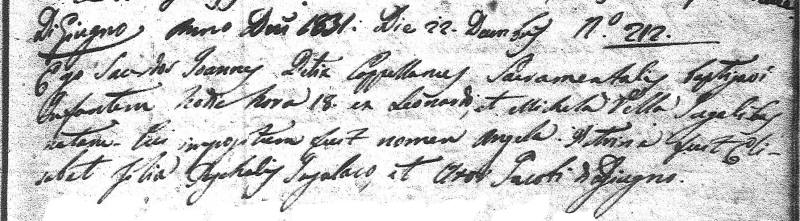 DiGiugno Anno Dni 1831. Die 22. Decembris N.º 212.
Ego Sacdos Joannes Petix Cappellanus Sacramentalis baptizavi
Infantem hodie hora 18. ex Leonardo, et Michela Vella Jugalibus
natam. Cui impositum fuit nomen Angela. Patrina fuit Eli-
sabet filia Paschalis, et Uxor Jacobi diGiugno.